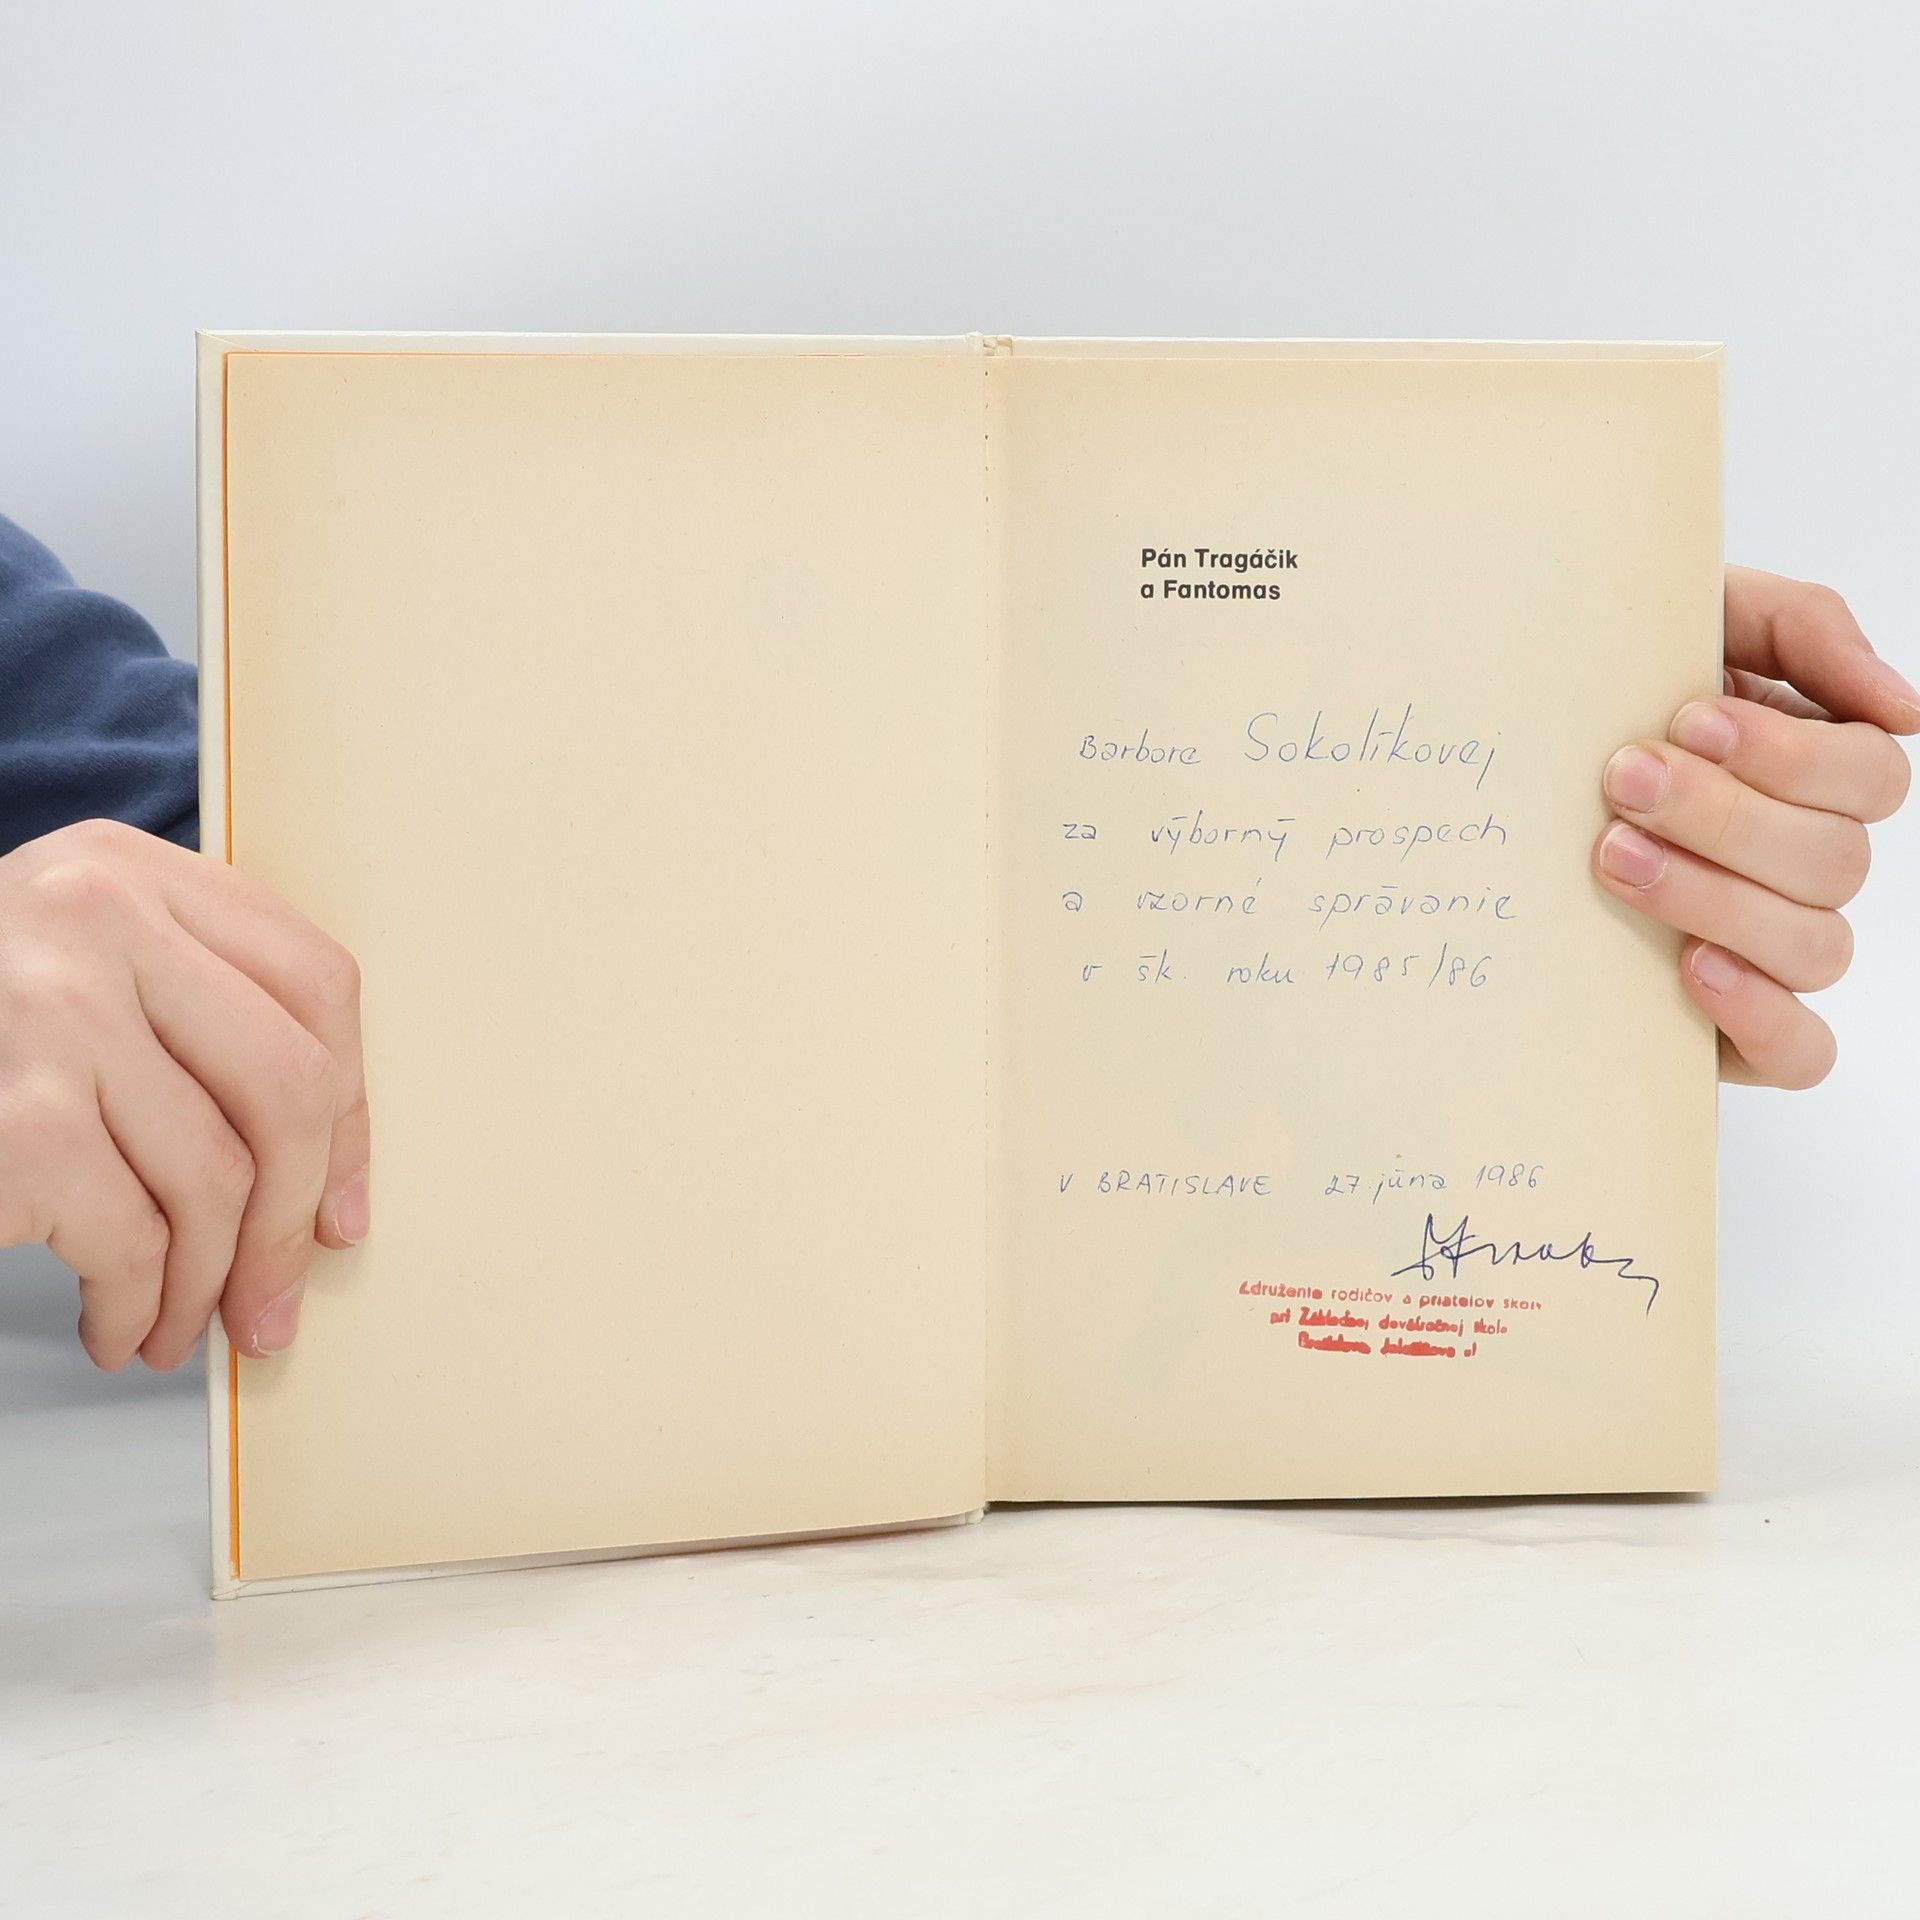 Pán Tragáčik
a Fantomas
Barbore Sokolíkovej
za výborný prospech
a vzorné správanie
v šk. roku 1985/86
V BRATISLAVE 27. júna 1986
Združenie rodičov a priateľov školy
pri Základnej deväťročnej škole
Bratislava